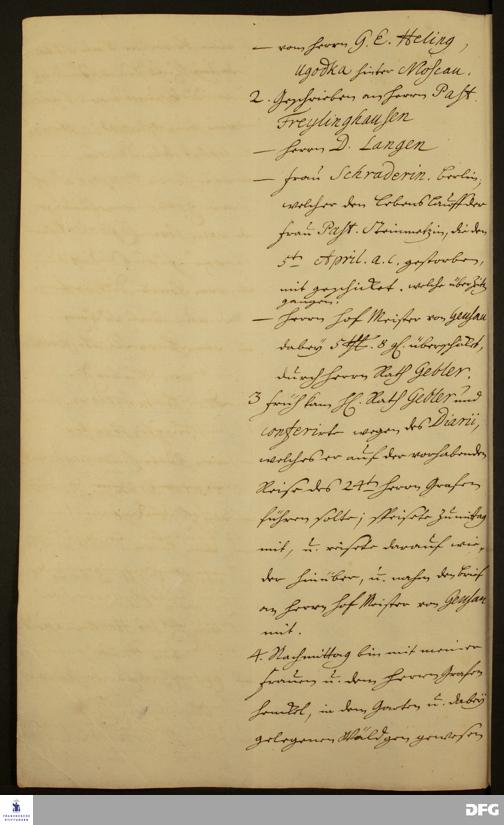 – vom Herrn G. E. Heling,
Ugodka hinter Moscau.
2. Geschrieben an Herrn Past
Freylinghausen
– Herrn D. Langen
– Frau Schraderin. Berlin,
welcher den Lebenslauff der
Frau Past. Steinmetzin, die den
5ten April. a. c. gestorben,
mit geschicket. welche über
gangen.
– Herrn Hof Meister von Geusau
dabey 5 8 gl. überschickt,
durch Herrn Rath Gebler.
3 früh kam H. Rath Gebler und
conferirte wegen des Diarii,
welches er auf der vorhabenden
Reise des 24ten Herrn Grafen
führen solte; speisete zu mittag
mit, u. reisete darauf wie-
der hinüber, u. nahm den brief
an Herrn Hof Meister von Geusau
mit.
4. Nachmittag bin mit meiner
Frauen u. dem Herrn Grafen
Henckel, in dem Garten u. dabey
gelegenen Wäldgen gewesen
FRANCKESCHE
STIFTUNGEN
DFG